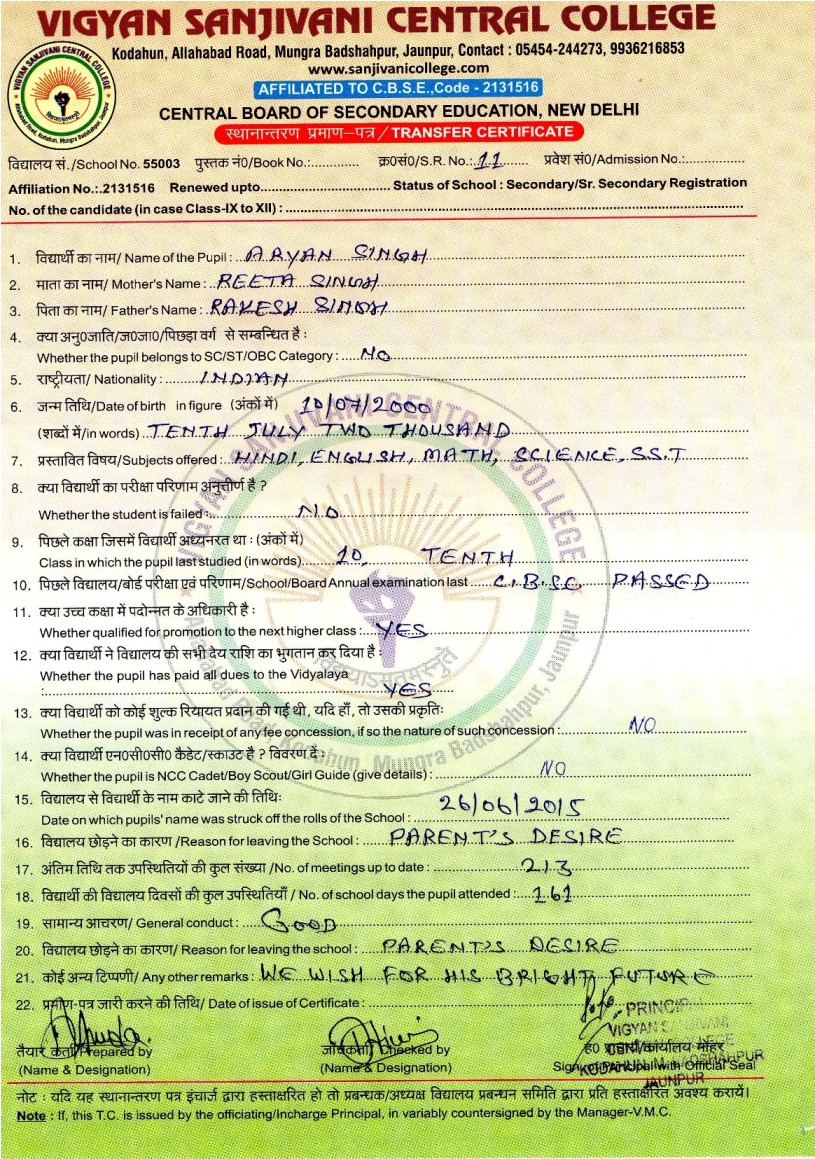 VIGYAN SANJIVANI CENTRAL COLLEGE
Kodahun, Allahabad Road, Mungra Badshahpur, Jaunpur, Contact : 05454-244273, 9936216853
www.sanjivanicollege.com
AFFILIATED TO C.B.S.E.,Code - 2131516
CENTRAL BOARD OF SECONDARY EDUCATION, NEW DELHI
स्थानान्तरण प्रमाण–पत्र / TRANSFER CERTIFICATE
विद्यालय सं./School No. 55003 पुस्तक नं0/Book No.:............. क्र0सं0/S.R. No.: 11 प्रवेश सं0/Admission No.:................
Affiliation No.:.2131516 Renewed upto.................................. Status of School : Secondary/Sr. Secondary Registration
No. of the candidate (in case Class-IX to XII) : ........................................
1. विद्यार्थी का नाम/ Name of the Pupil : ARYAN SINGH
2. माता का नाम/ Mother's Name : REETA SINGH
3. पिता का नाम/ Father's Name : RAKESH SINGH
4. क्या अनु0जाति/ज0जा0/पिछड़ा वर्ग से सम्बन्धित है :
Whether the pupil belongs to SC/ST/OBC Category : NO
5. राष्ट्रीयता/ Nationality : INDIAN
6. जन्म तिथि/Date of birth in figure (अंकों में) 10/07/2000
(शब्दों में/in words) TENTH JULY TWO THOUSAND
7. प्रस्तावित विषय/Subjects offered : HINDI, ENGLISH, MATH, SCIENCE, S.S.T
8. क्या विद्यार्थी का परीक्षा परिणाम अनुत्तीर्ण है ?
Whether the student is failed : NO
9. पिछले कक्षा जिसमें विद्यार्थी अध्यनरत था : (अंकों में)
Class in which the pupil last studied (in words) 10, TENTH
10. पिछले विद्यालय/बोर्ड परीक्षा एवं परिणाम/School/Board Annual examination last C.B.S.E PASSED
11. क्या उच्च कक्षा में पदोन्नत के अधिकारी है :
Whether qualified for promotion to the next higher class : YES
12. क्या विद्यार्थी ने विद्यालय की सभी देय राशि का भुगतान कर दिया है :
Whether the pupil has paid all dues to the Vidyalaya
: YES
13. क्या विद्यार्थी को कोई शुल्क रियायत प्रदान की गई थी, यदि हाँ, तो उसकी प्रकृतिः
Whether the pupil was in receipt of any fee concession, if so the nature of such concession : NO
14. क्या विद्यार्थी एन0सी0सी0 कैडेट/स्काउट है ? विवरण दें :
Whether the pupil is NCC Cadet/Boy Scout/Girl Guide (give details) : NO
15. विद्यालय से विद्यार्थी के नाम काटे जाने की तिथिः
Date on which pupils' name was struck off the rolls of the School : 26/06/2015
16. विद्यालय छोड़ने का कारण /Reason for leaving the School : PARENT'S DESIRE
17. अंतिम तिथि तक उपस्थितियों की कुल संख्या /No. of meetings up to date : 213
18. विद्यार्थी की विद्यालय दिवसों की कुल उपस्थितियाँ / No. of school days the pupil attended : 161
19. सामान्य आचरण/ General conduct : GOOD
20. विद्यालय छोड़ने का कारण/ Reason for leaving the school : PARENT'S DESIRE
21. कोई अन्य टिप्पणी/ Any other remarks : WE WISH FOR HIS BRIGHT FUTURE
22. प्रमाण-पत्र जारी करने की तिथि/ Date of issue of Certificate : ........................................
PRINCIPAL
VIGYAN SANJIVANI
CENTRAL COLLEGE
KODAHUN, M. BADSHAHPUR
JAUNPUR
तैयार कर्ता/Prepared by जांचकर्ता/Checked by ह0 प्राचार्य/कार्यालय मोहर
(Name & Designation) (Name & Designation) Sign of Principal with Official Seal
नोट : यदि यह स्थानान्तरण पत्र इंचार्ज द्वारा हस्ताक्षरित हो तो प्रबन्धक/अध्यक्ष विद्यालय प्रबन्धन समिति द्वारा प्रति हस्ताक्षरित अवश्य करायें।
Note : If, this T.C. is issued by the officiating/Incharge Principal, in variably countersigned by the Manager-V.M.C.